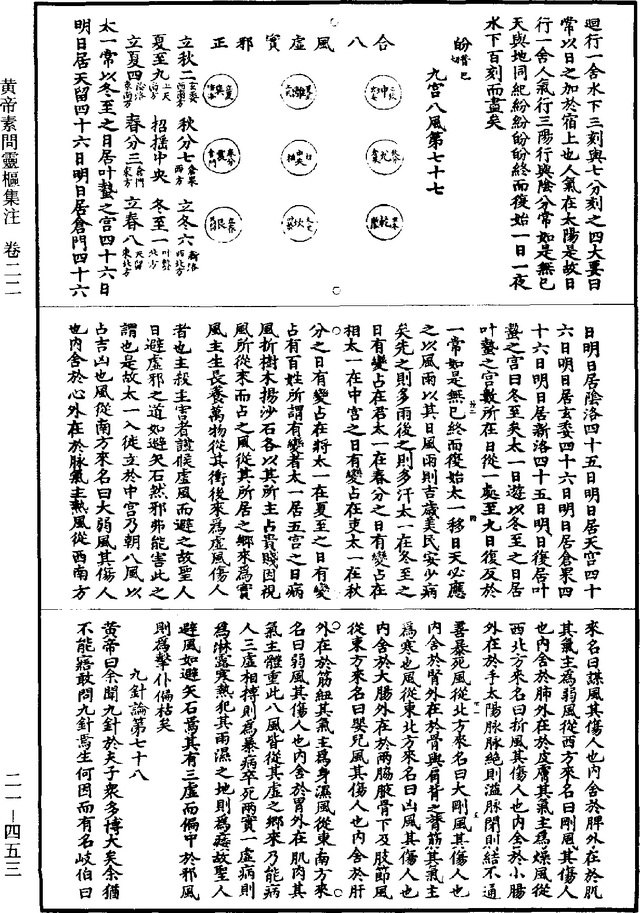 黃帝素問靈樞集注 卷二二
二一－四五三
迴行一舍水下三刻與七分刻之四大要曰
常以日之加於宿上也人氣在太陽是故日
行一舍人氣行三陽行與陰分常如是無已
天與地同紀紛紛盼盼終而復始一日一夜
水下百刻而盡矣
九宮八風第七十七
合八風虛實邪正
立秋二玄委西南方 秋分七倉果西方 立冬六新洛西北方
夏至九上天南方 招搖中央 冬至一叶蟄北方
立夏四陰洛東南方 春分三倉門東方 立春八天留東北方
太一常以冬至之日居叶蟄之宮四十六日
明日居天留四十六日明日居倉門四十六
日明日居陰洛四十五日明日居天宮四十
六日明日居玄委四十六日明日居倉果四
十六日明日居新洛四十五日明日復居叶
蟄之宮曰冬至矣太一日遊以冬至之日居
叶蟄之宮數所在日從一處至九日復反於
一常如是無已終而復始太一移日天必應
之以風雨以其日風雨則吉歲美民安少病
矣先之則多雨後之則多汗太一在冬至之
日有變占在君太一在春分之日有變占在
相太一在中宮之日有變占在吏太一在秋
分之日有變占在將太一在夏至之日有變
占有百姓所謂有變者太一居五宮之日病
風折樹木揚沙石各以其所主占貴賤因視
風所從來而占之風從其所居之鄉來為實
風主生長養萬物從其衝後來為虛風傷人
者也主殺主害者謹候虛風而避之故聖人
日避虛邪之道如避矢石然邪弗能害此之
謂也是故太一入徙立於中宮乃朝八風以
占吉凶也風從南方來名曰大弱風其傷人
也內舍於心外在於脉氣主熱風從西南方
來名曰謀風其傷人也內舍於脾外在於肌
其氣主為弱風從西方來名曰剛風其傷人
也內舍於肺外在於皮膚其氣主為燥風從
西北方來名曰折風其傷人也內舍於小腸
外在於手太陽脉脉絕則溢脉閉則結不通
善暴死風從北方來名曰大剛風其傷人也
內舍於腎外在於骨與肩背之膂筋其氣主
為寒也風從東北方來名曰凶風其傷人也
內舍於大腸外在於兩脇腋骨下及肢節風
從東方來名曰嬰兒風其傷人也內舍於肝
外在於筋紐其氣主為身濕風從東南方來
名曰弱風其傷人也內舍於胃外在肌肉其
氣主體重此八風皆從其虛之鄉來乃能病
人三虛相搏則為暴病卒死兩實一虛病則
為淋露寒熱犯其雨濕之地則為痿故聖人
避風如避矢石焉其有三虛而偏中於邪風
則為擊仆偏枯矣
九針論第七十八
黃帝曰余聞九針於夫子衆多博大矣余猶
不能寤敢問九針焉生何因而有名岐伯曰